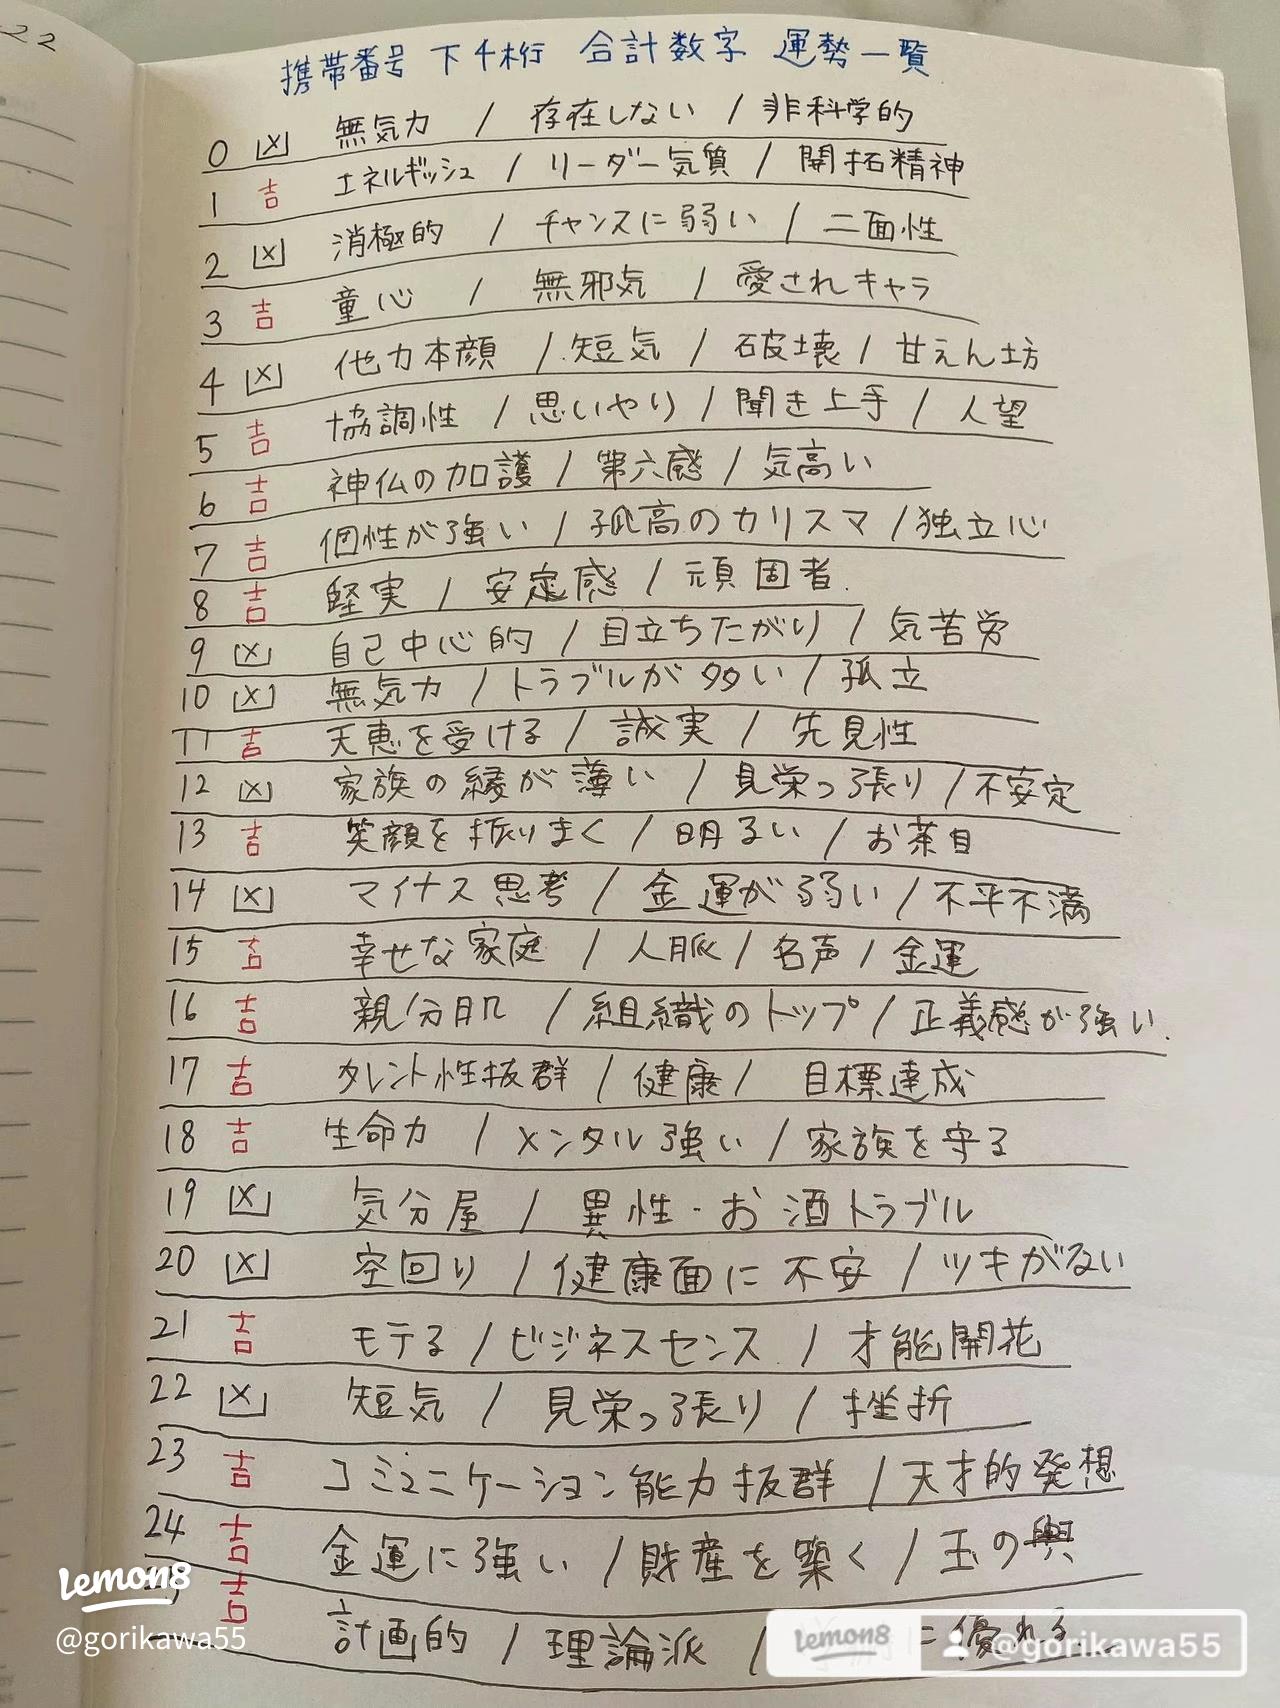 22
携帯番号 下4桁 合計数字 運勢一覧
0 凶 無気力 / 存在しない / 非科学的
1 吉 エネルギッシュ / リーダー気質 / 開拓精神
2 凶 消極的 / チャンスに弱い / 二面性
3 吉 童心 / 無邪気 / 愛されキャラ
4 凶 他力本願 / 短気 / 破壊 / 甘えん坊
5 吉 協調性 / 思いやり / 聞き上手 / 人望
6 吉 神仏の加護 / 第六感 / 気高い
7 吉 個性が強い / 孤高のカリスマ / 独立心
8 吉 堅実 / 安定感 / 頑固者
9 凶 自己中心的 / 目立ちたがり / 気苦労
10 凶 無気力 / トラブルが多い / 孤立
11 吉 天恵を受ける / 誠実 / 先見性
12 凶 家族の縁が薄い / 見栄っ張り / 不安定
13 吉 笑顔を振りまく / 明るい / お茶目
14 凶 マイナス思考 / 金運が弱い / 不平不満
15 吉 幸せな家庭 / 人脈 / 名声 / 金運
16 吉 親分肌 / 組織のトップ / 正義感が強い.
17 吉 タレント性抜群 / 健康 / 目標達成
18 吉 生命力 / メンタル強い / 家族を守る
19 凶 気分屋 / 異性・お酒トラブル
20 凶 空回り / 健康面に不安 / ツキがない
21 吉 モテる / ビジネスセンス / 才能開花
22 凶 短気 / 見栄っ張り / 挫折
23 吉 コミュニケーション能力抜群 / 天才的発想
24 吉 金運に強い / 財産を築く / 玉の輿
吉 計画的 / 理論派 / に優れる
Lemon8
@gorikawa55
Lemon8 @gorikawa55